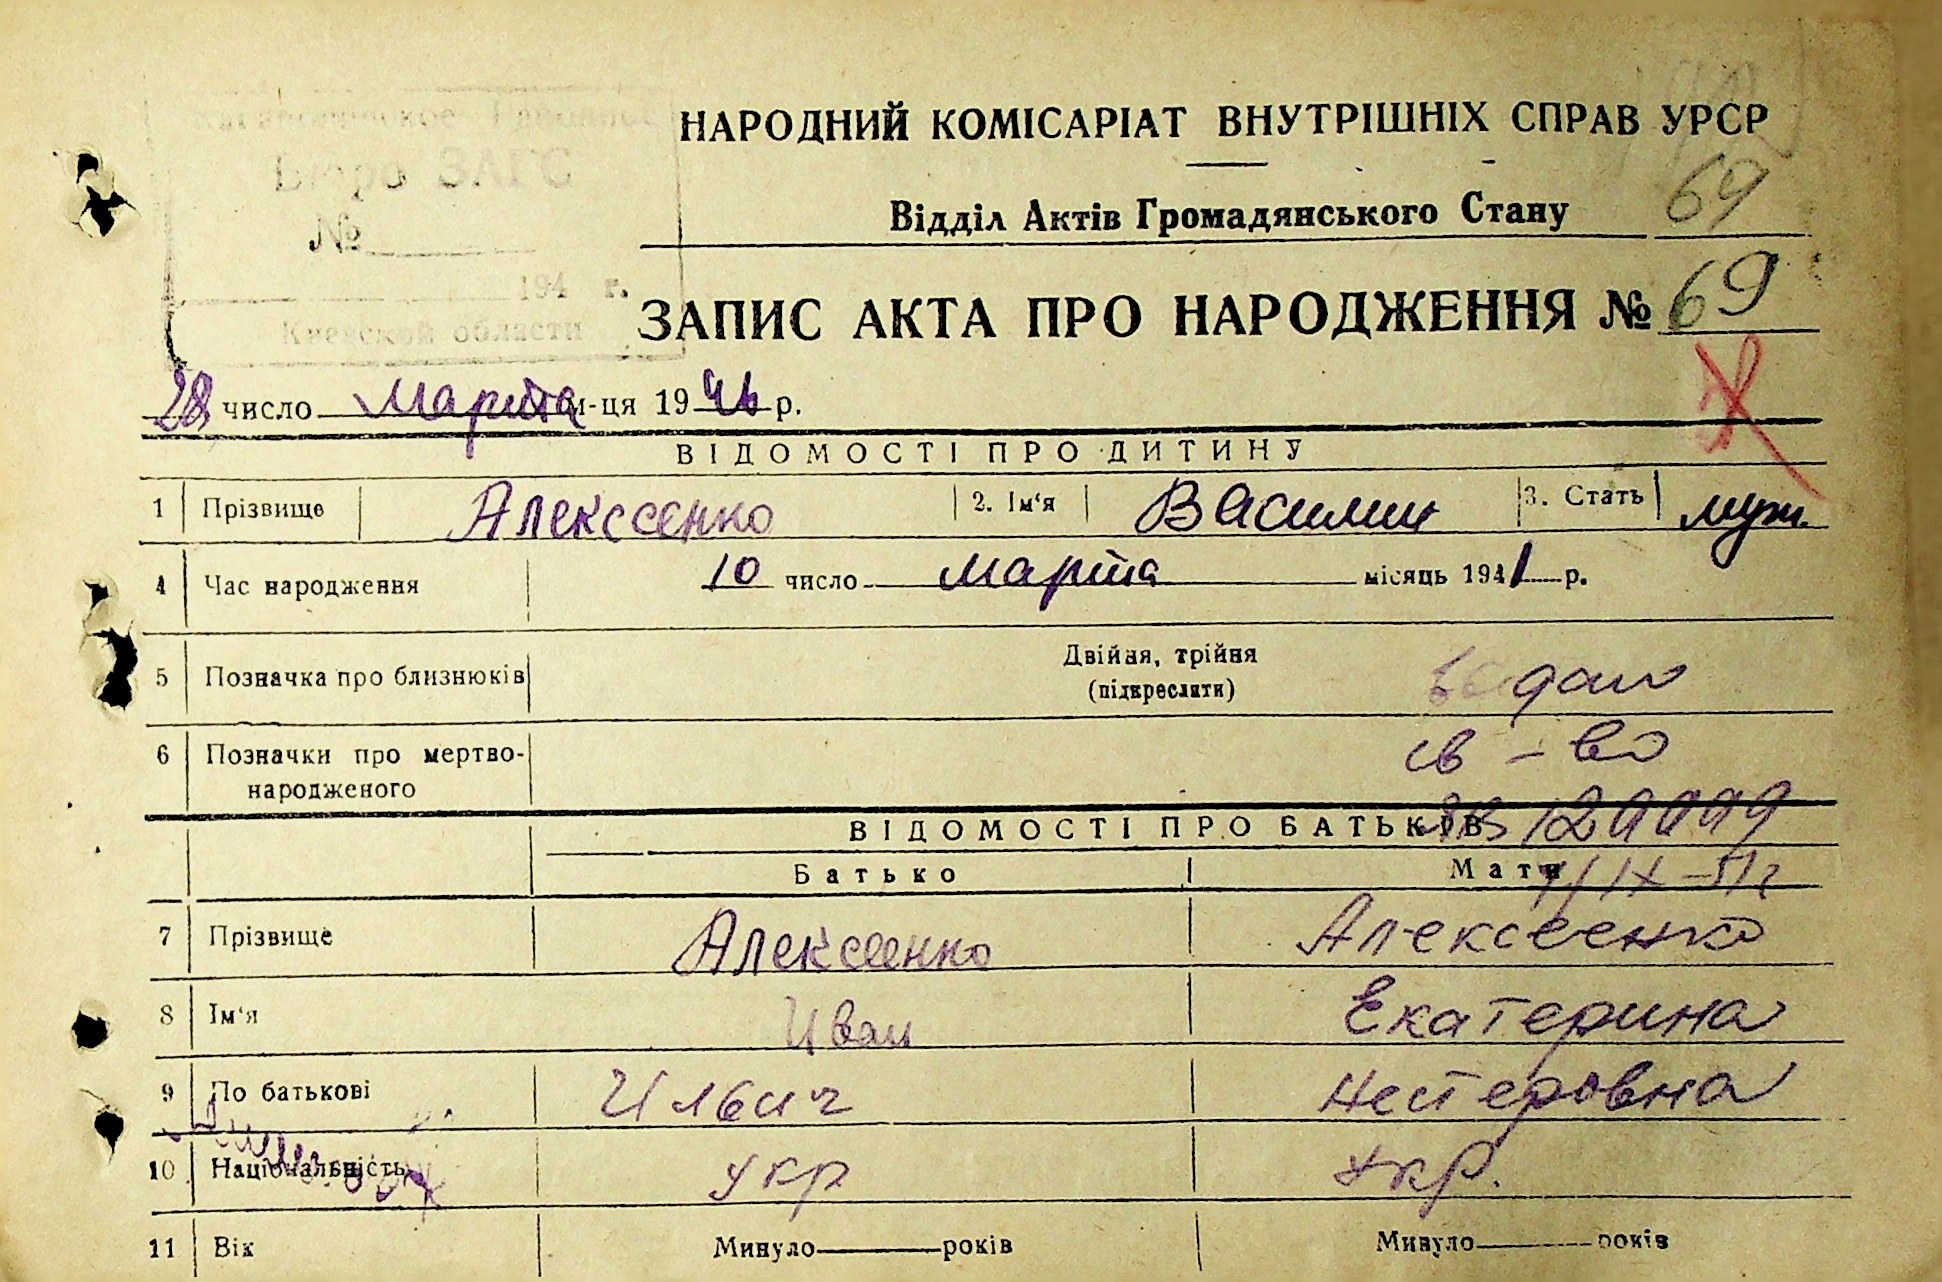 НАРОДНИЙ КОМІСАРІАТ ВНУТРІШНІХ СПРАВ УРСР
Бюро ЗАГС
№
194 г.
Киевской области
69
Відділ Актів Громадянського Стану
ЗАПИС АКТА ПРО НАРОДЖЕННЯ № 69
28 число Марта м-ця 1946 р.
ВІДОМОСТІ ПРО ДИТИНУ
1 Прізвище Алексеенко 2. Ім'я Василий 3. Стать муж.
4 Час народження 10 число марта місяць 1941 р.
5 Позначка про близнюків Двійня, трійня (підкреслити)
6 Позначки про мертво-
народженого
св-во
ВІДОМОСТІ ПРО БАТЬКІВ
Батько Мати
7 Прізвище Алексеенко Алексеенко
8 Ім'я Иван Екатерина
9 По батькові Ильич Нестеровна
10 Національність укр укр.
11 Вік Минуло років Минуло років